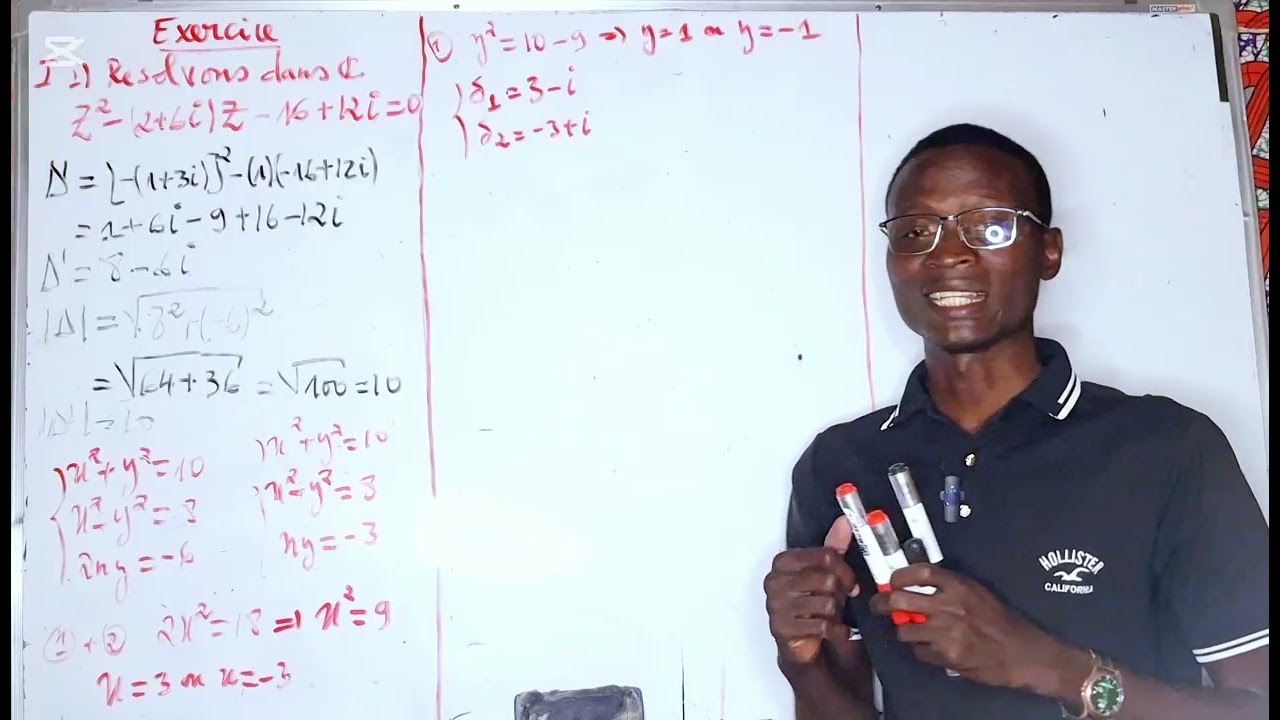 Exercice
I 1) Resolvons dans ℂ
Z² - (2+6i) Z - 16 + 12i = 0
Δ' = [-(1+3i)]² - (1)(-16+12i)
= 1 + 6i - 9 + 16 - 12i
Δ' = 8 - 6i
|Δ| = √8² + (-6)²
= √64 + 36 = √100 = 10
|Δ'| = 10
x² + y² = 10
x² - y² = 8
2xy = -6
x² + y² = 10
x² - y² = 8
xy = -3
① + ② 2x² = 18 => x² = 9
x = 3 ou x = -3
① y² = 10 - 9 => y = 1 ou y = -1
δ₁ = 3 - i
δ₂ = -3 + i
MASTER
HOLLISTER
CALIFORNIA